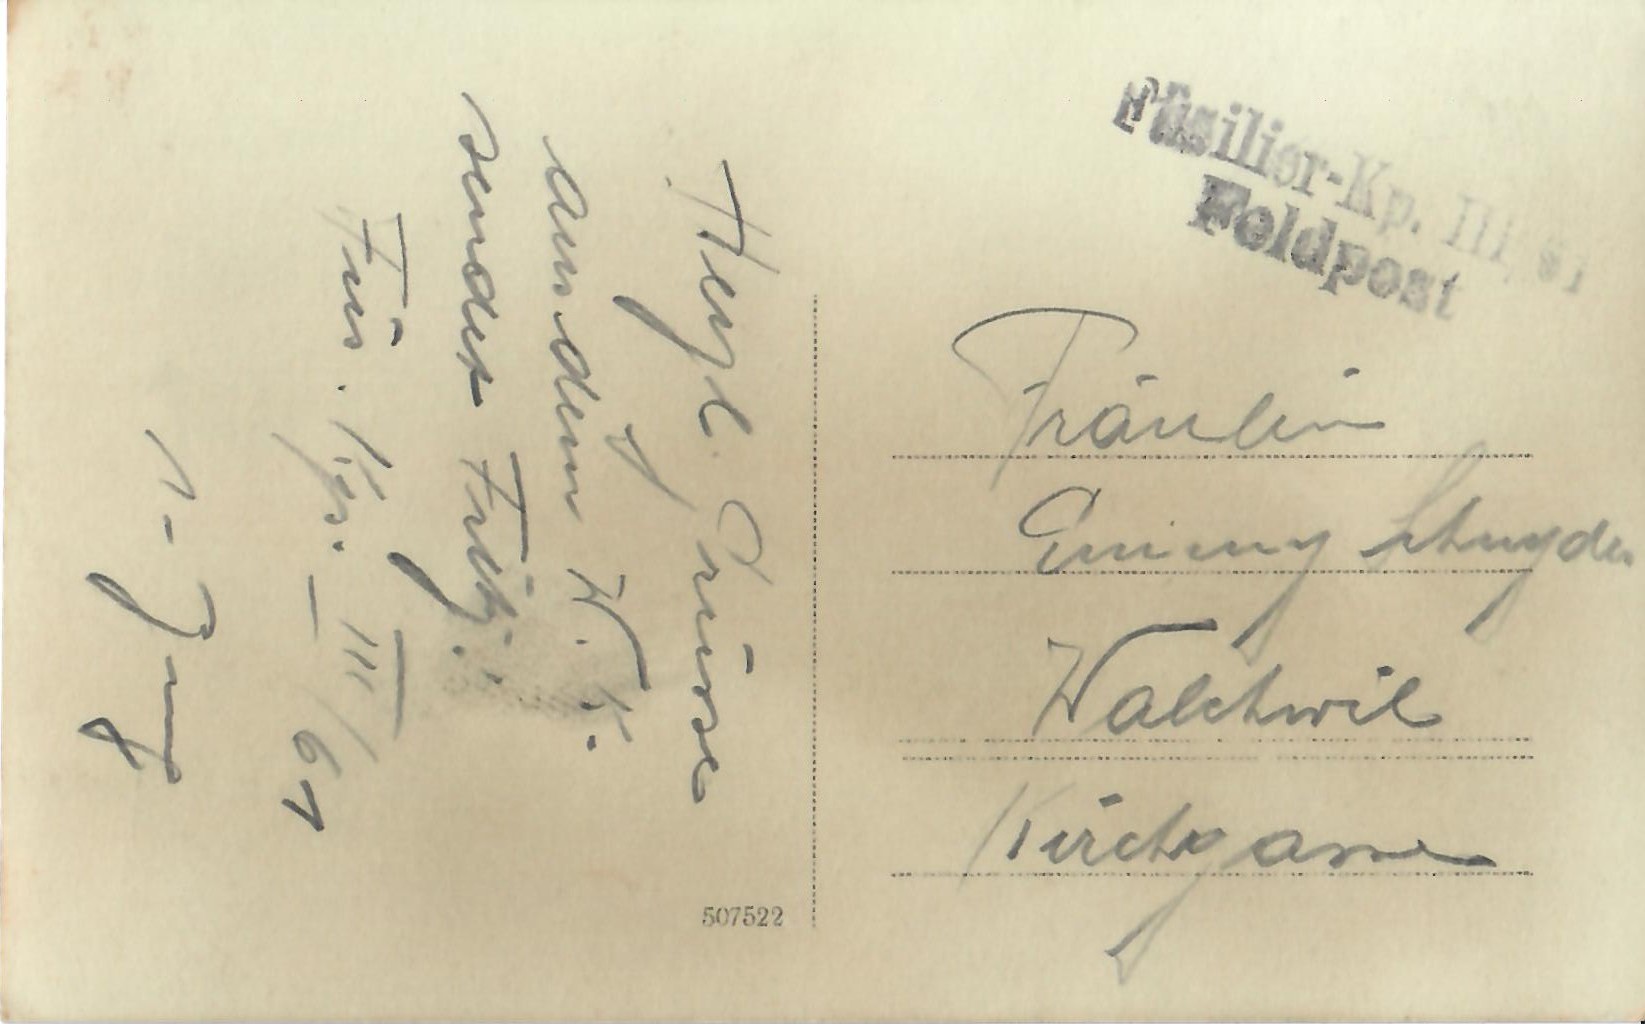 Herzl. Grüsse
aus dem W. K.
sendet Fritz.
Füs. Kp. III/61
Füsilier-Kp. III/61
Feldpost
Fräulein
Emmy Schnyder
Walchwil
Kirchgasse
507522